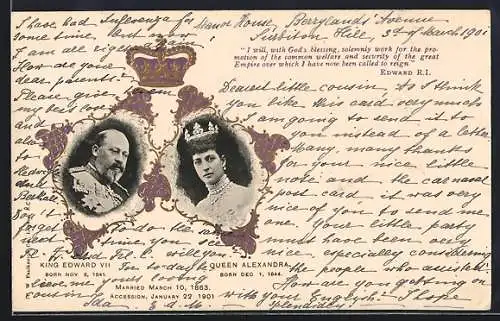 Manor House, Berrylands Avenue
Surbiton Hill, 3rd of March 1901
"I will, with God's blessing, solemnly work for the pro-
motion of the common welfare and security of the great
Empire over which I have now been called to reign."
EDWARD R.I.
Dearest little cousin, As I think
you like this card very much
I am going to send it to
you instead of a letter
Many, many thanks
for your nice little
note and the carnaval
post card it was very
nice of you to send me
one. Your little party
must have been very
nice, especially considering
the people who assisted!
How are you getting on
with your English? I hope
splendidly!
I have had Influenza for
some time, but now
I am all right again!
How are your
dear parents?
Please give them
my best love
and
also
to
Don't
forget
to do the same
time you see
for to-day
lieve me your loving
cousin
Ida
KING EDWARD VII
BORN NOV. 9, 1841.
QUEEN ALEXANDRA.
BORN DEC. 1, 1844.
MARRIED MARCH 10, 1863.
ACCESSION, JANUARY 22 1901